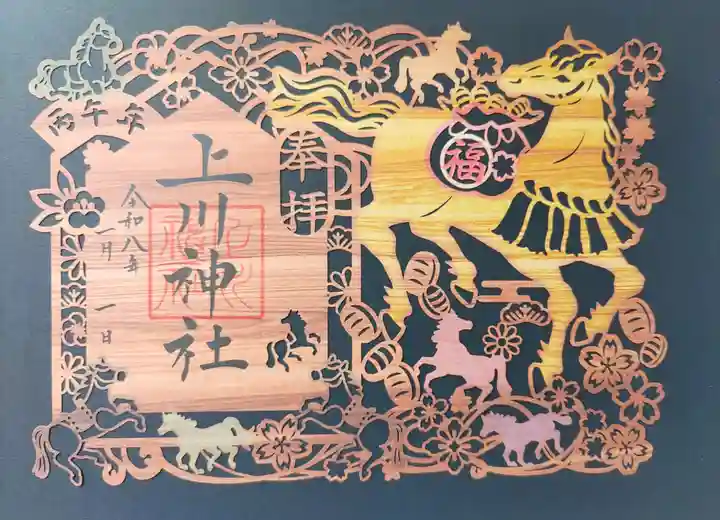 丙午年
奉拝
上川神社
令和八年
一月一日
福